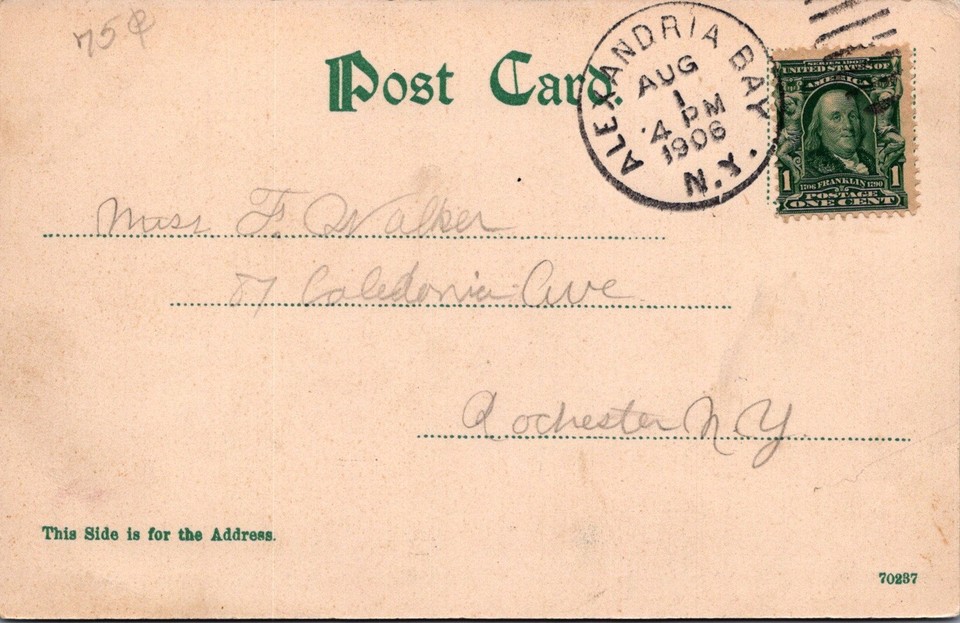 75¢
Post Card.
ALEXANDRIA BAY
AUG
1
4 PM
1906
N.Y.
SERIES 1902
UNITED STATES OF
AMERICA
1 1
1706 FRANKLIN 1790
POSTAGE
ONE CENT
Miss F. Walker
87 Caledonia Ave
Rochester N Y
This Side is for the Address.
70237